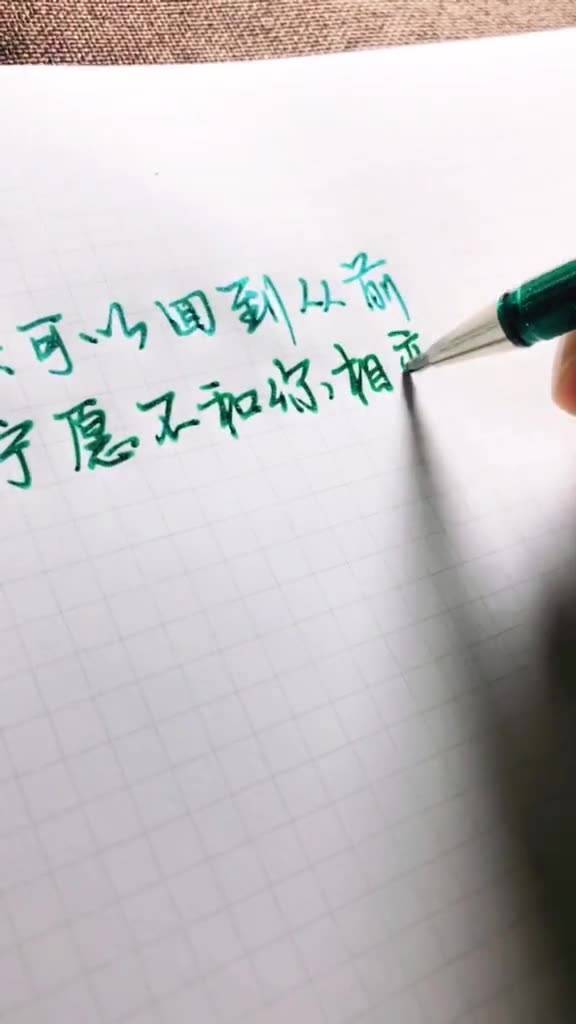 可以回到从前
宁愿不和你相